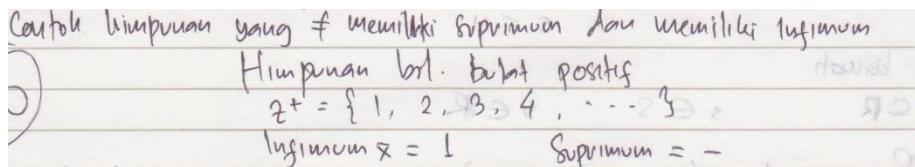 Contoh himpunan yang ≠ memiliki suprimum dan memiliki Infimum
Himpunan bil. bulat positif
z⁺ = { 1, 2, 3, 4, ..... }
Infimum x = 1 Suprimum = -